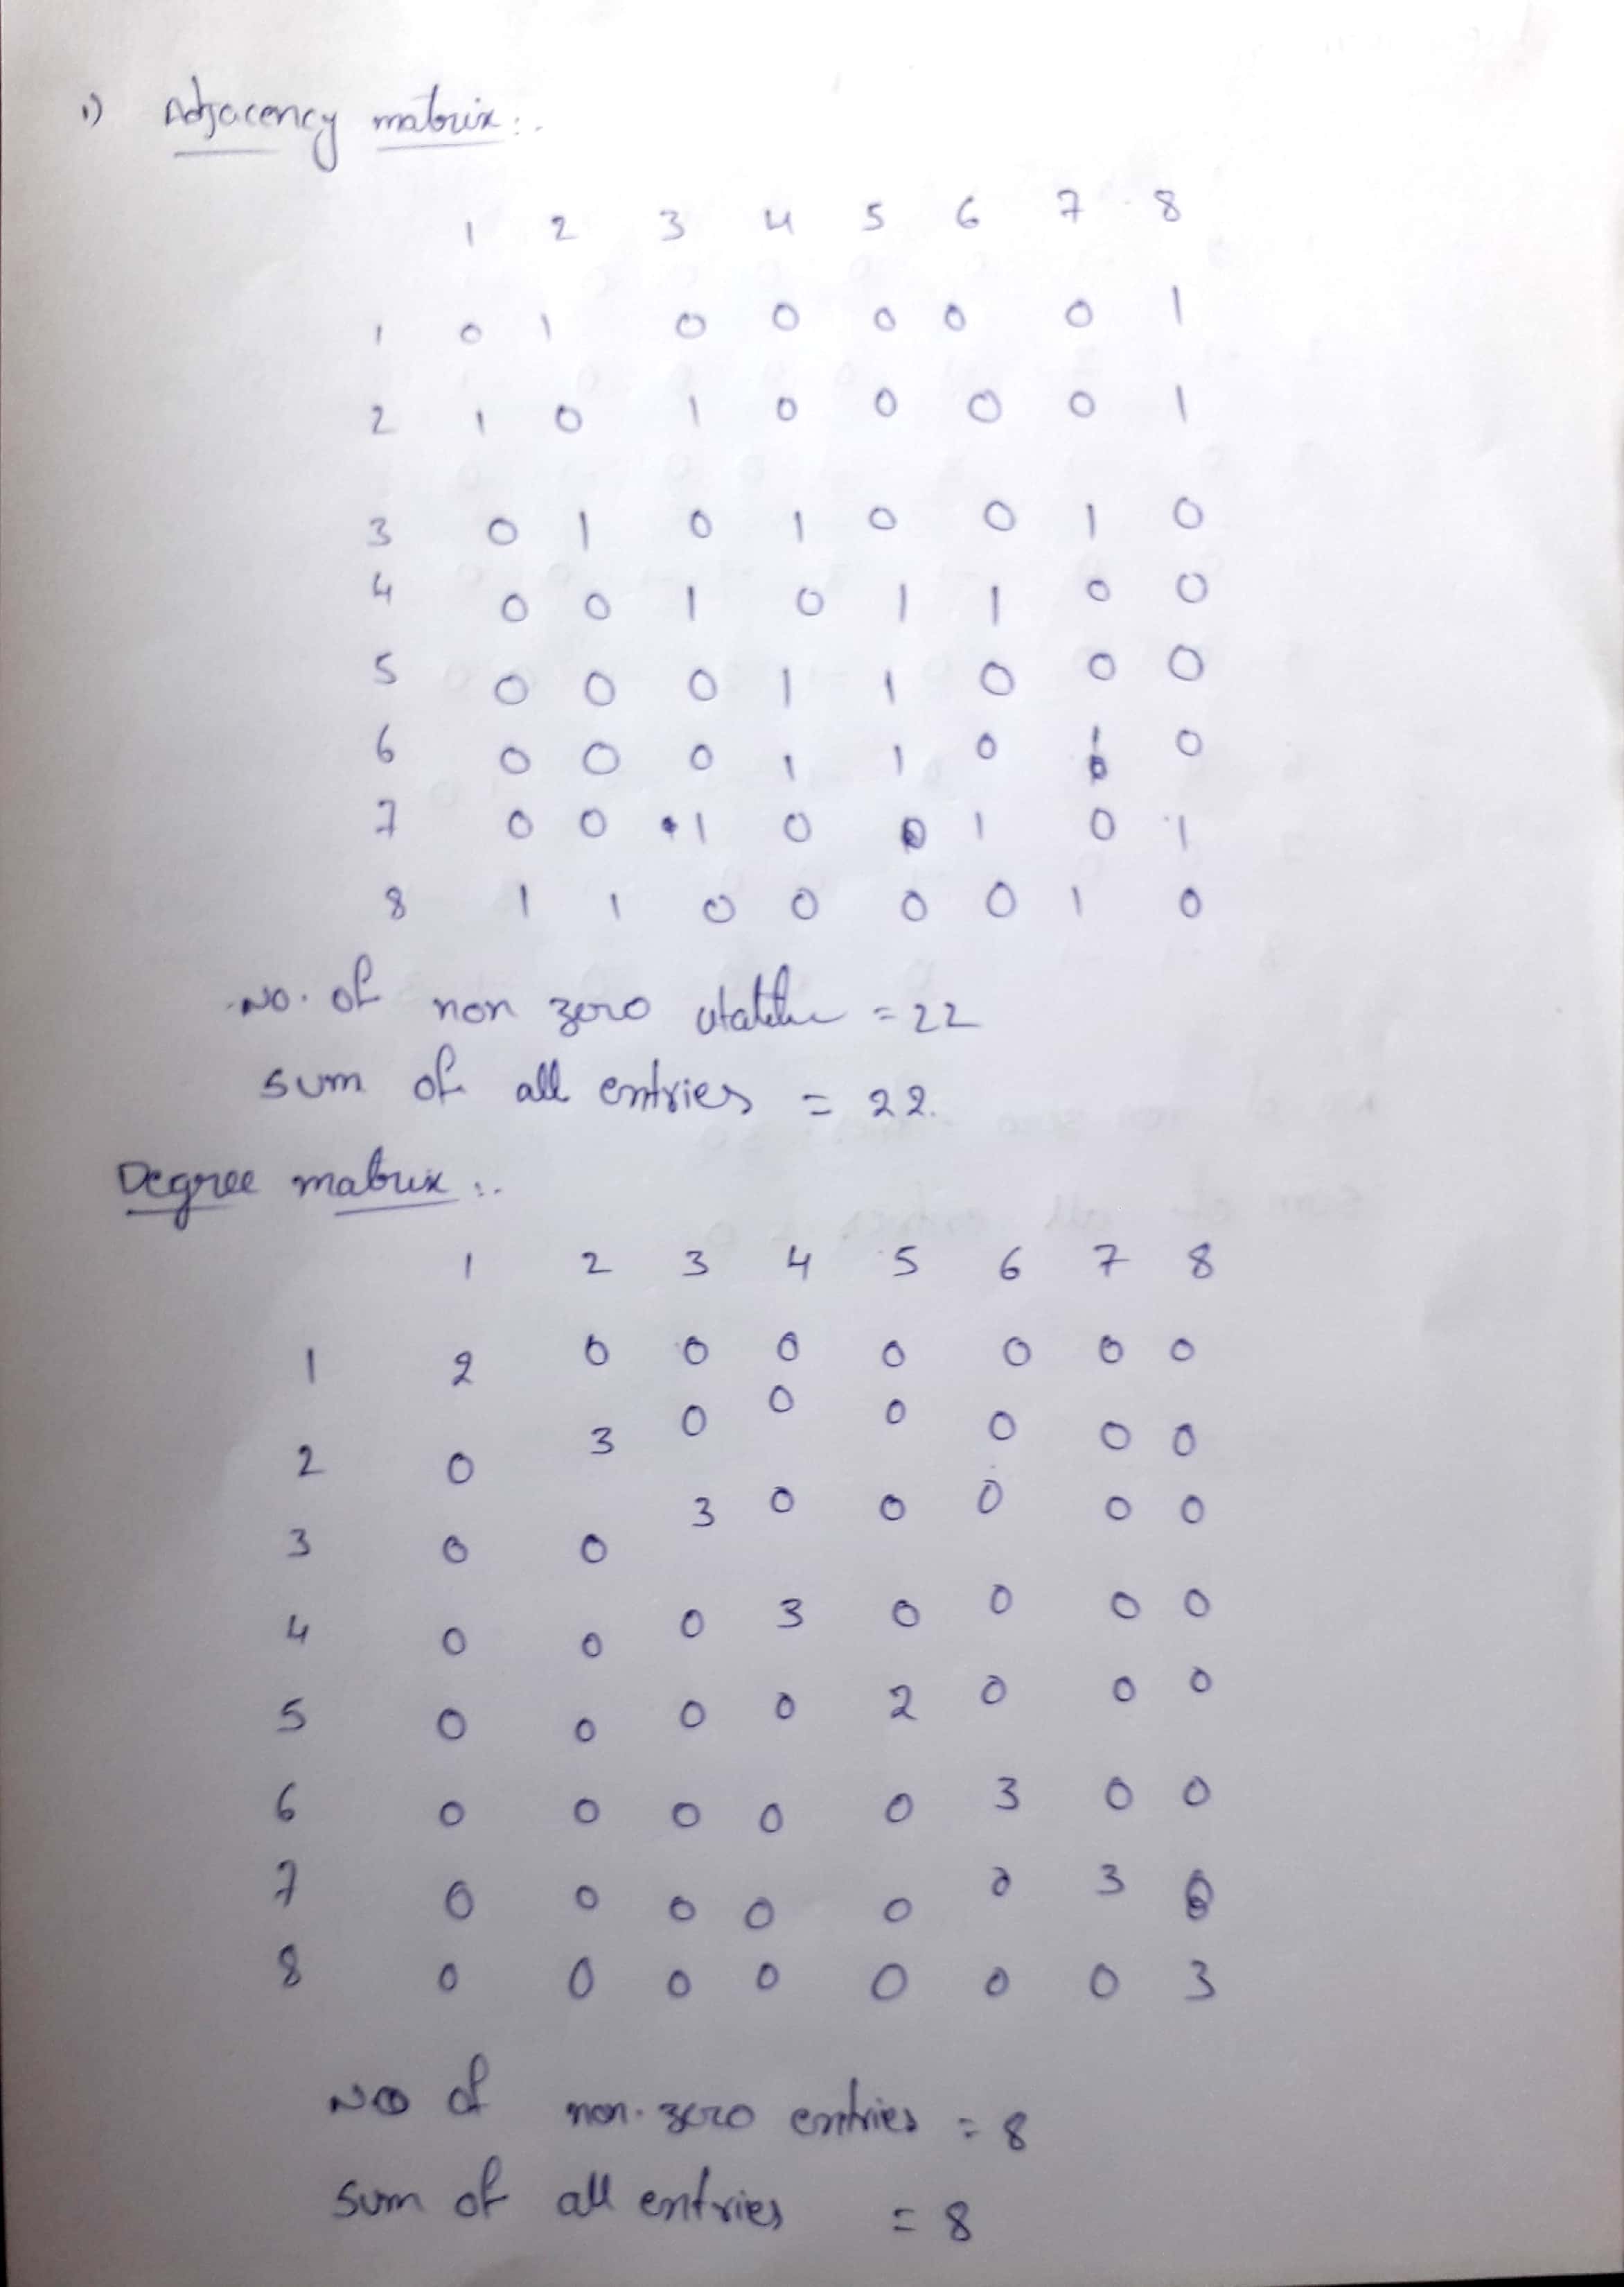 1) Adjacency matrix:.
1 2 3 4 5 6 7 8
1 0 1 0 0 0 0 0 1
2 1 0 1 0 0 0 0 1
3 0 1 0 1 0 0 1 0
4 0 0 1 0 1 1 0 0
5 0 0 0 1 1 0 0 0
6 0 0 0 1 1 0 1 0
7 0 0 1 0 0 1 0 1
8 1 1 0 0 0 0 1 0
No. of non zero = 22
sum of all entries = 22.
Degree matrix:.
1 2 3 4 5 6 7 8
1 2 0 0 0 0 0 0 0
2 0 3 0 0 0 0 0 0
3 0 0 3 0 0 0 0 0
4 0 0 0 3 0 0 0 0
5 0 0 0 0 2 0 0 0
6 0 0 0 0 0 3 0 0
7 0 0 0 0 0 0 3 0
8 0 0 0 0 0 0 0 3
NO of non-zero entries = 8
sum of all entries = 8